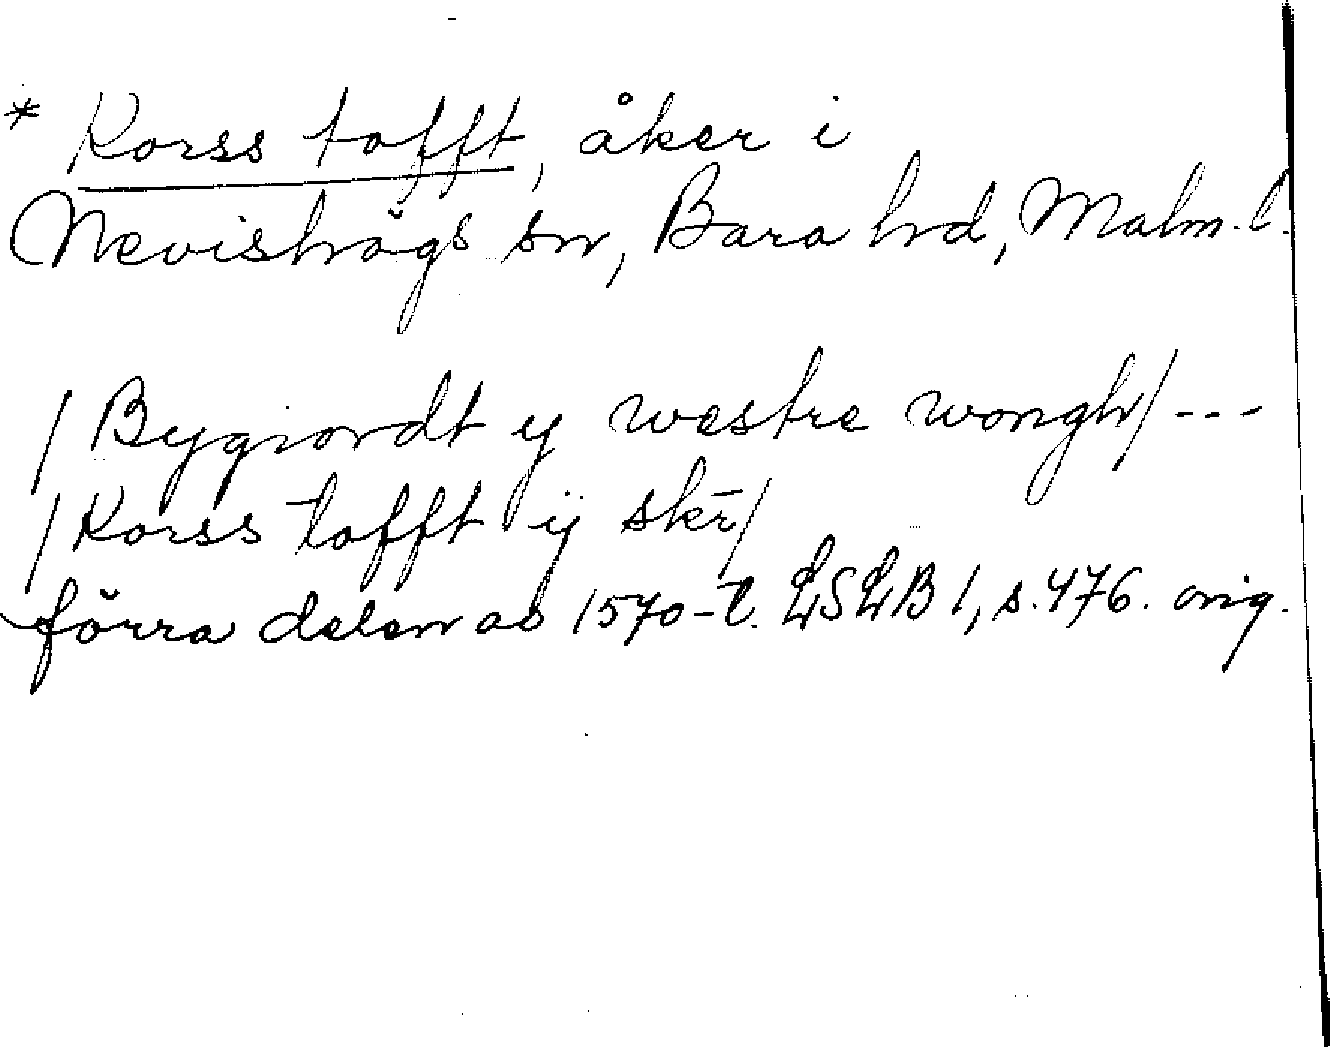 * Korss tofft, åker i
Nevishögs sn, Bara hd, Malm. l.
/Bygiordt y westre wongh/ ---
/Korss tofft ÿ skr̄/
förra delen av 1570-t. LSLB 1, s. 476. orig.